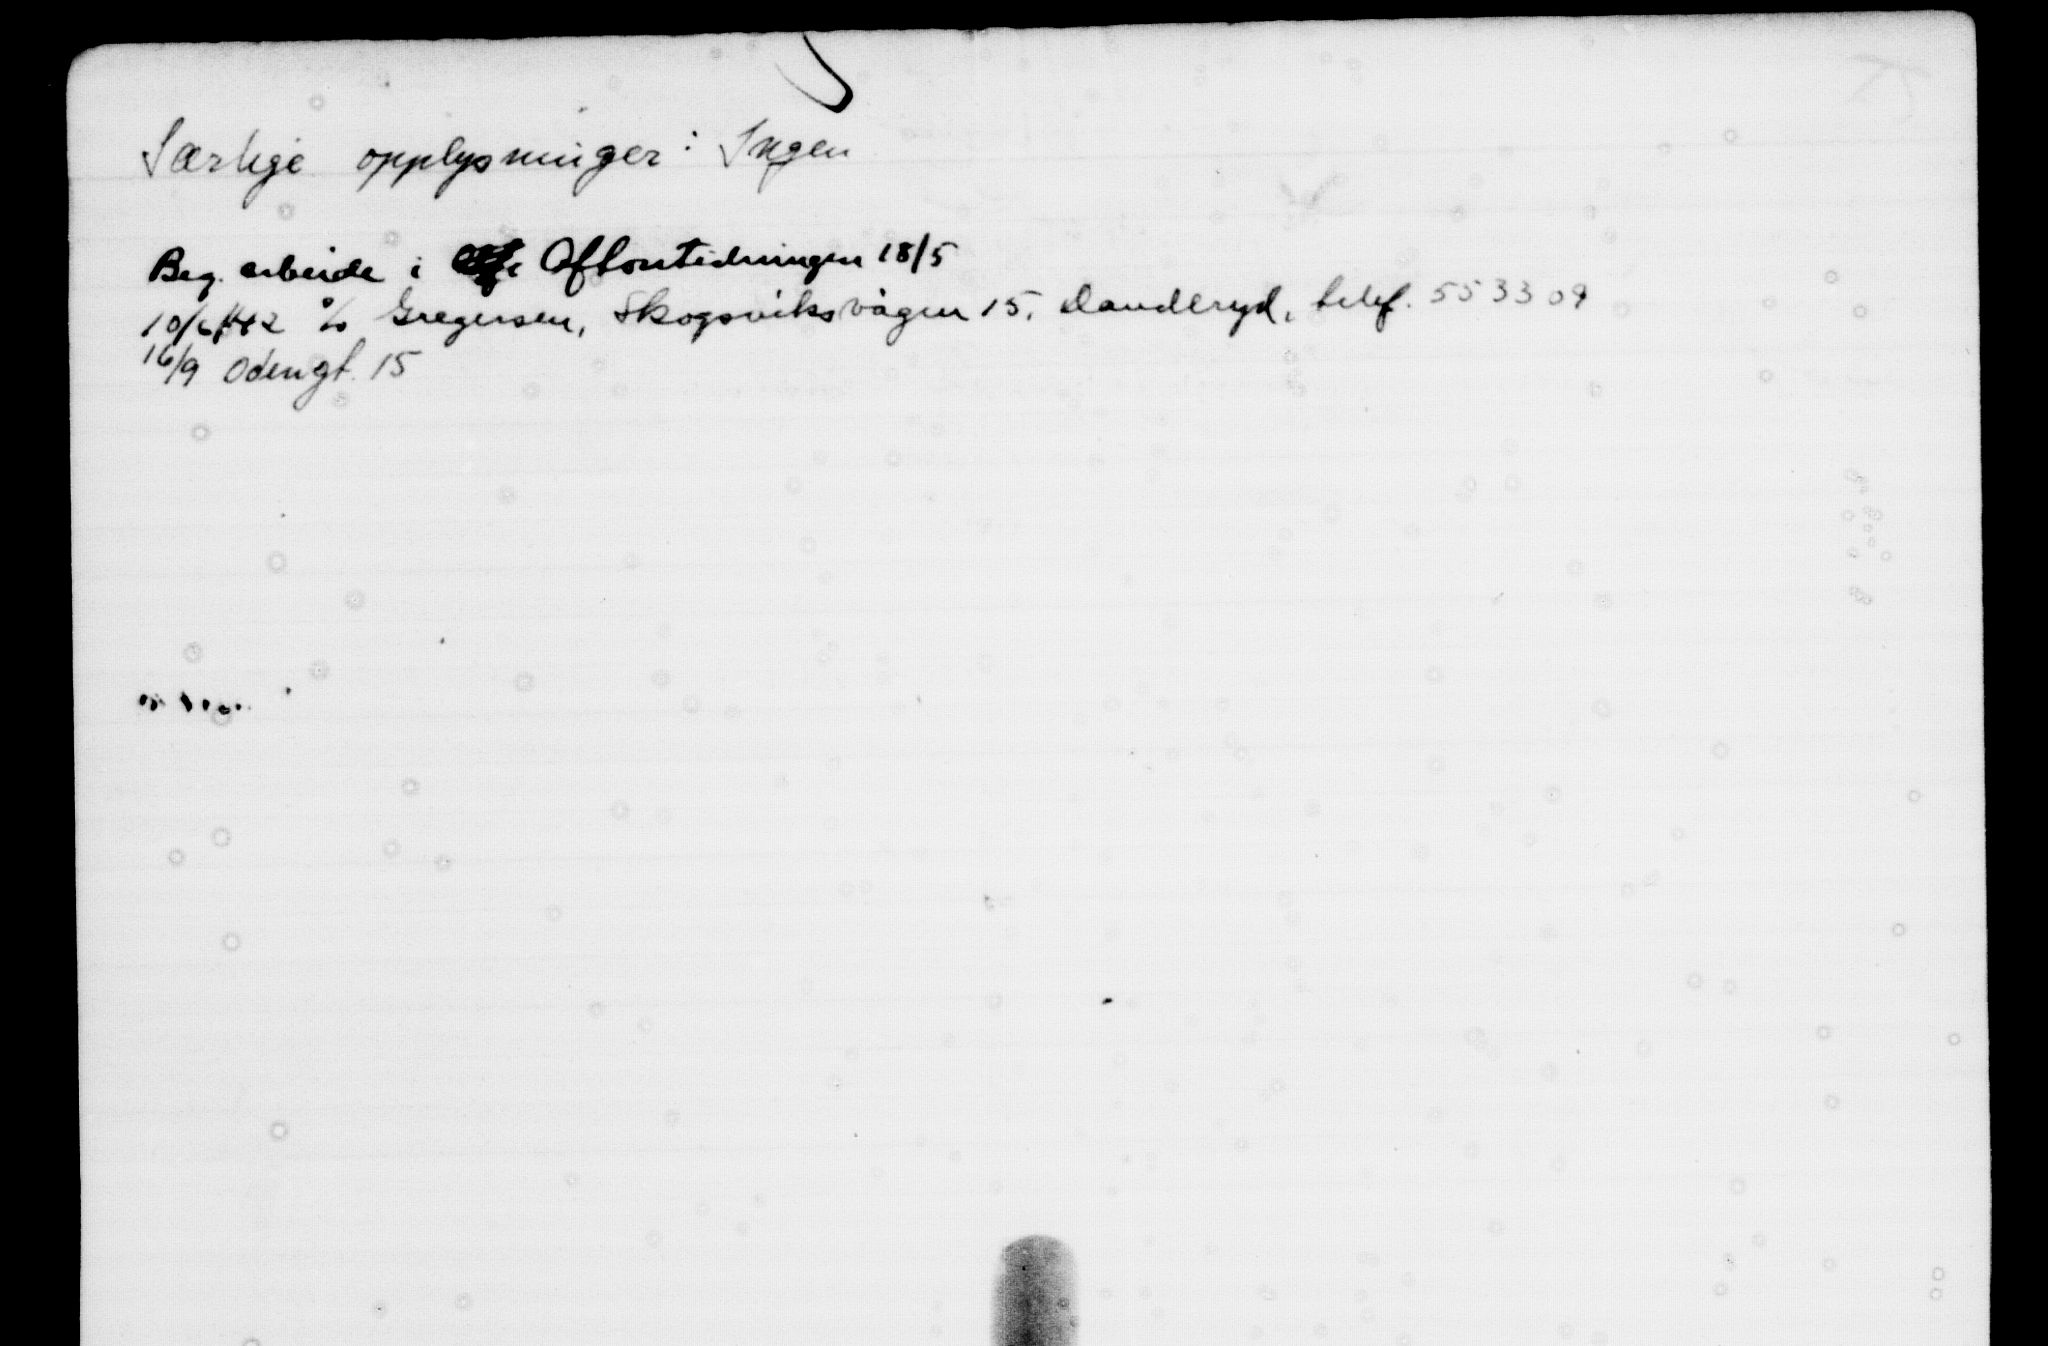 Særlige opplysninger: Ingen
Beg. arbeide i Aftontidningen 18/5
10/6 1942 c/o Gregersen, Skogsviksvägen 15, Danderyd, telef. 553309
16/9 Odengt. 15